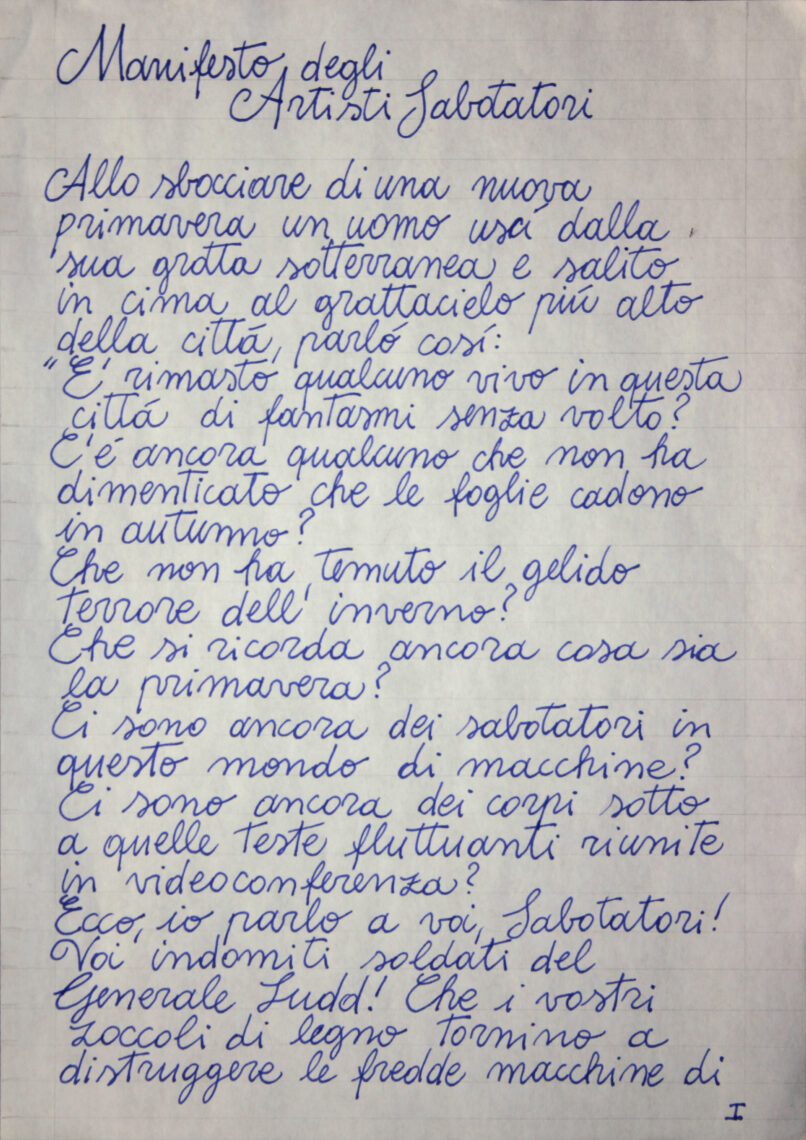 Manifesto degli
Artisti Sabotatori
Allo sbocciare di una nuova
primavera un uomo uscí dalla
sua grotta sotterranea e salito
in cima al grattacielo piú alto
della cittá, parló cosí:
"E' rimasto qualcuno vivo in questa
cittá di fantasmi senza volto?
C'é ancora qualcuno che non ha
dimenticato che le foglie cadono
in autunno?
Che non ha temuto il gelido
terrore dell'inverno?
Che si ricorda ancora cosa sia
la primavera?
Ci sono ancora dei sabotatori in
questo mondo di macchine?
Ci sono ancora dei corpi sotto
a quelle teste fluttuanti riunite
in videoconferenza?
Ecco, io parlo a voi, Sabotatori!
Voi indomiti soldati del
Generale Ludd! Che i vostri
zoccoli di legno tornino a
distruggere le fredde macchine di
I